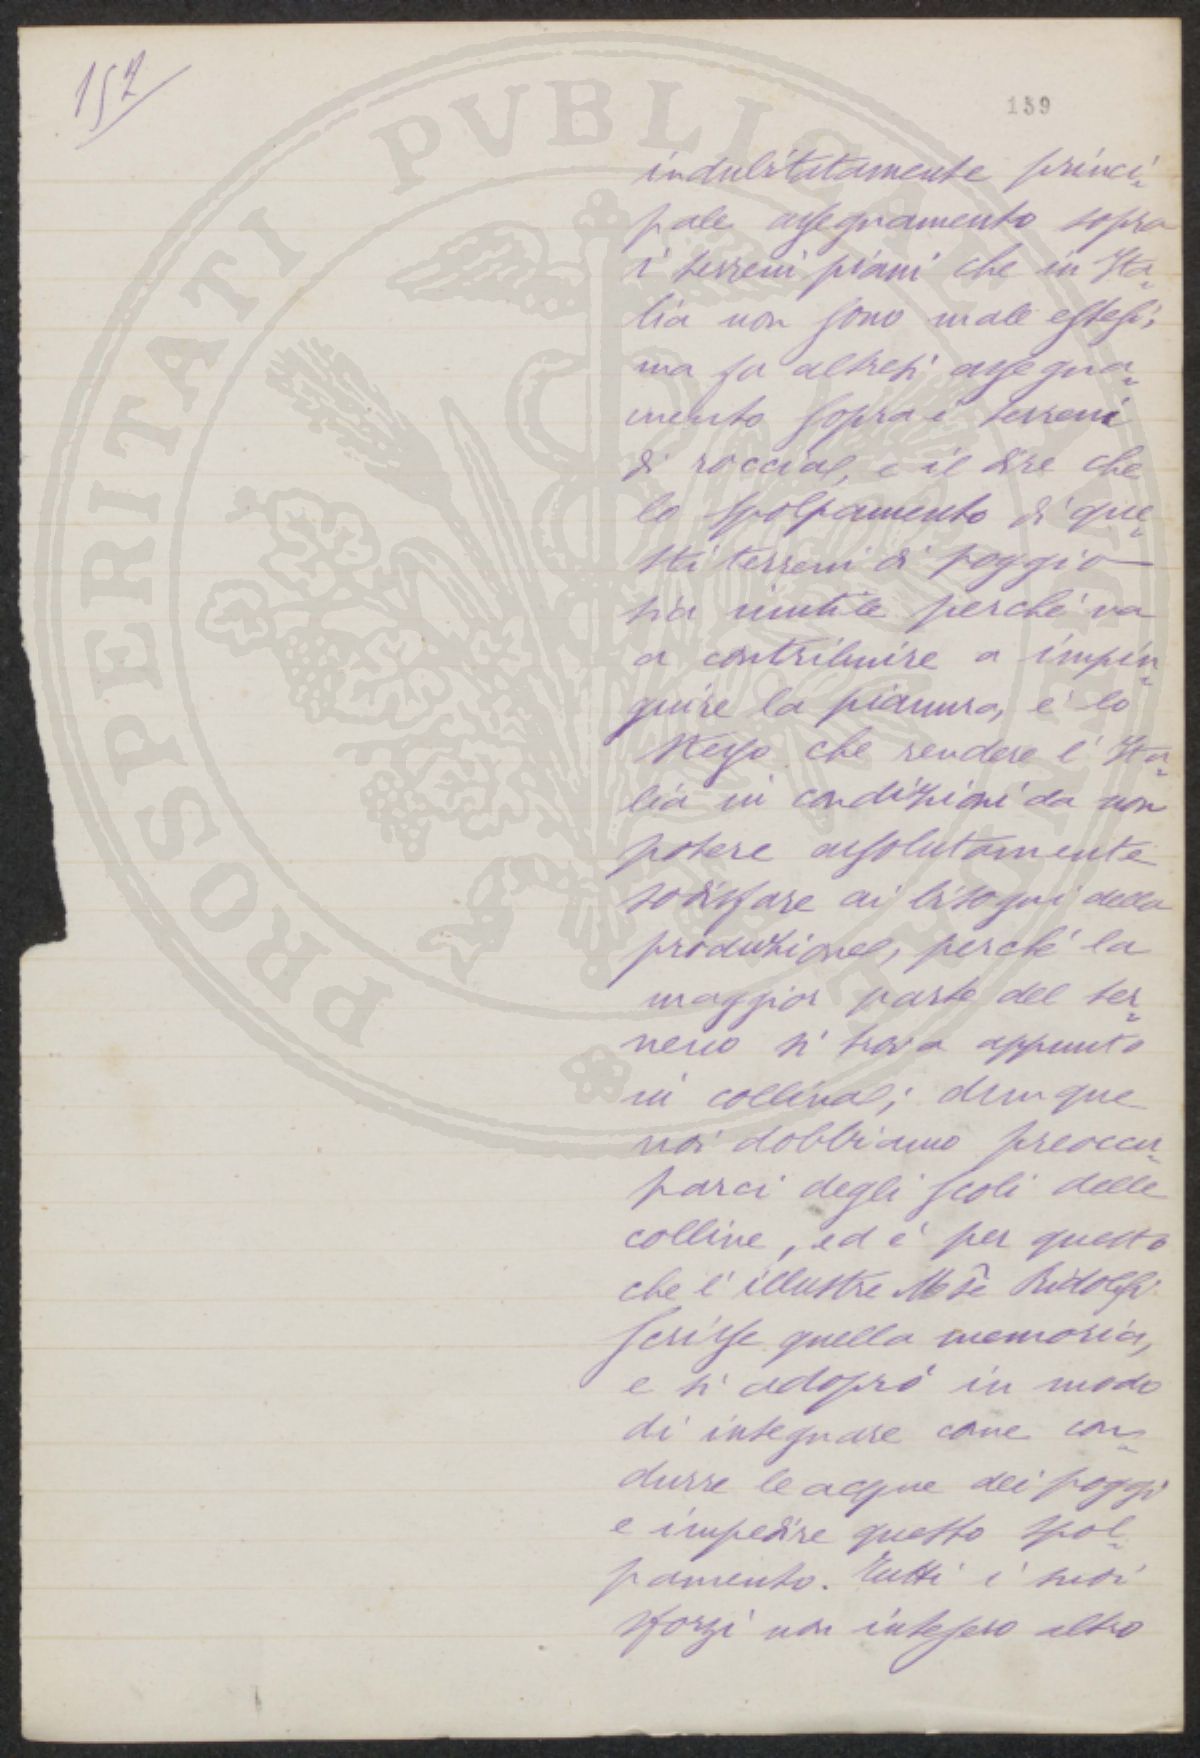 152
159
PROSPERITATI PUBLICAE
indubitatamente princi-
pale assegnamento sopra
i terreni piani che in Ita-
lia non sono male estesi;
ma fa altresì assegna-
mento sopra i terreni
di roccia, e il dire che
lo spolpamento di que-
sti terreni di poggio
sia inutile perché va
a contribuire a impin-
guire la pianura, è lo
stesso che rendere l'Ita-
lia in condizioni da non
potere assolutamente
sodisfare ai bisogni della
produzione, perché la
maggior parte del ter-
reno si trova appunto
in collina; dunque
noi dobbiamo preoccu-
parci degli scoli delle
colline, ed è per questo
che l'illustre Mse Ridolfi
scrisse quella memoria,
e si adoprò in modo
di integnare come con-
durre le acque dei poggi
e impedire questo spol-
pamento. Tutti i suoi
sforzi non intesero altro